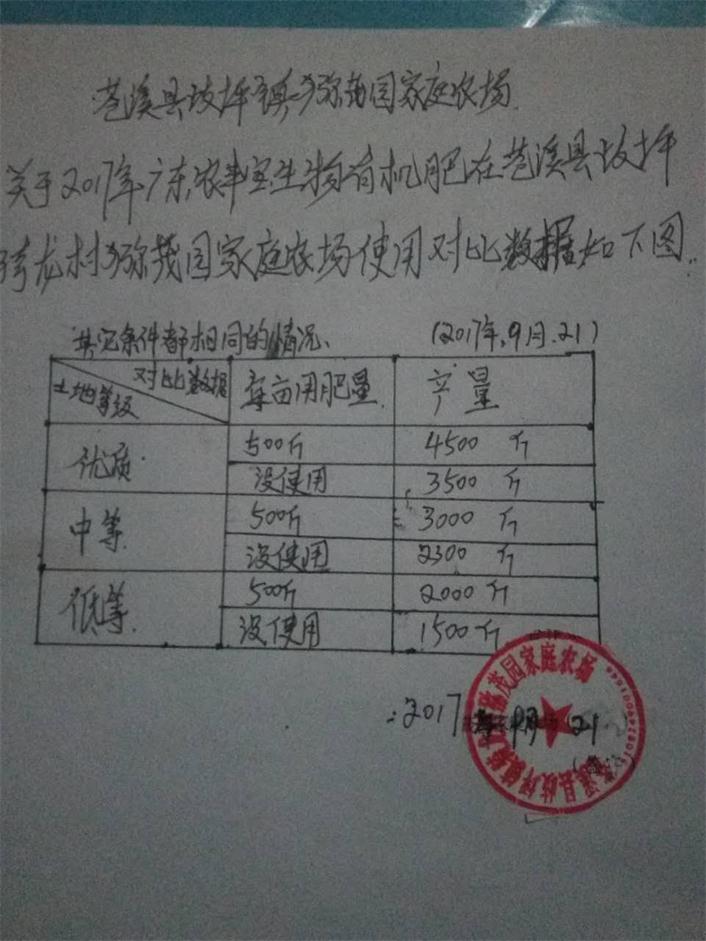 苍溪县歧坪镇猕茂园家庭农场
关于2017年广东农丰宝生物有机肥在苍溪县歧坪
骑龙村猕茂园家庭农场使用对比数据如下图
其它条件都相同的情况、 (2017年,9月.21)
对比数据 土地等级 每亩用肥量 产量
优质 500斤 4500 斤
没使用 3500 斤
中等 500斤 3000 斤
没使用 2300 斤
低等 500斤 2000 斤
没使用 1500 斤
茂园家庭农场
2017 年 9月 21
苍溪县歧坪镇